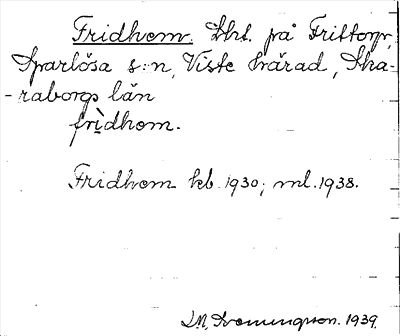 Fridhem. Lht. på Frittorp,
Sparlösa s:n, Viste härad, Ska-
-raborgs län
frìdhom.
Fridhem kb. 1930; ml. 1938.
1939.